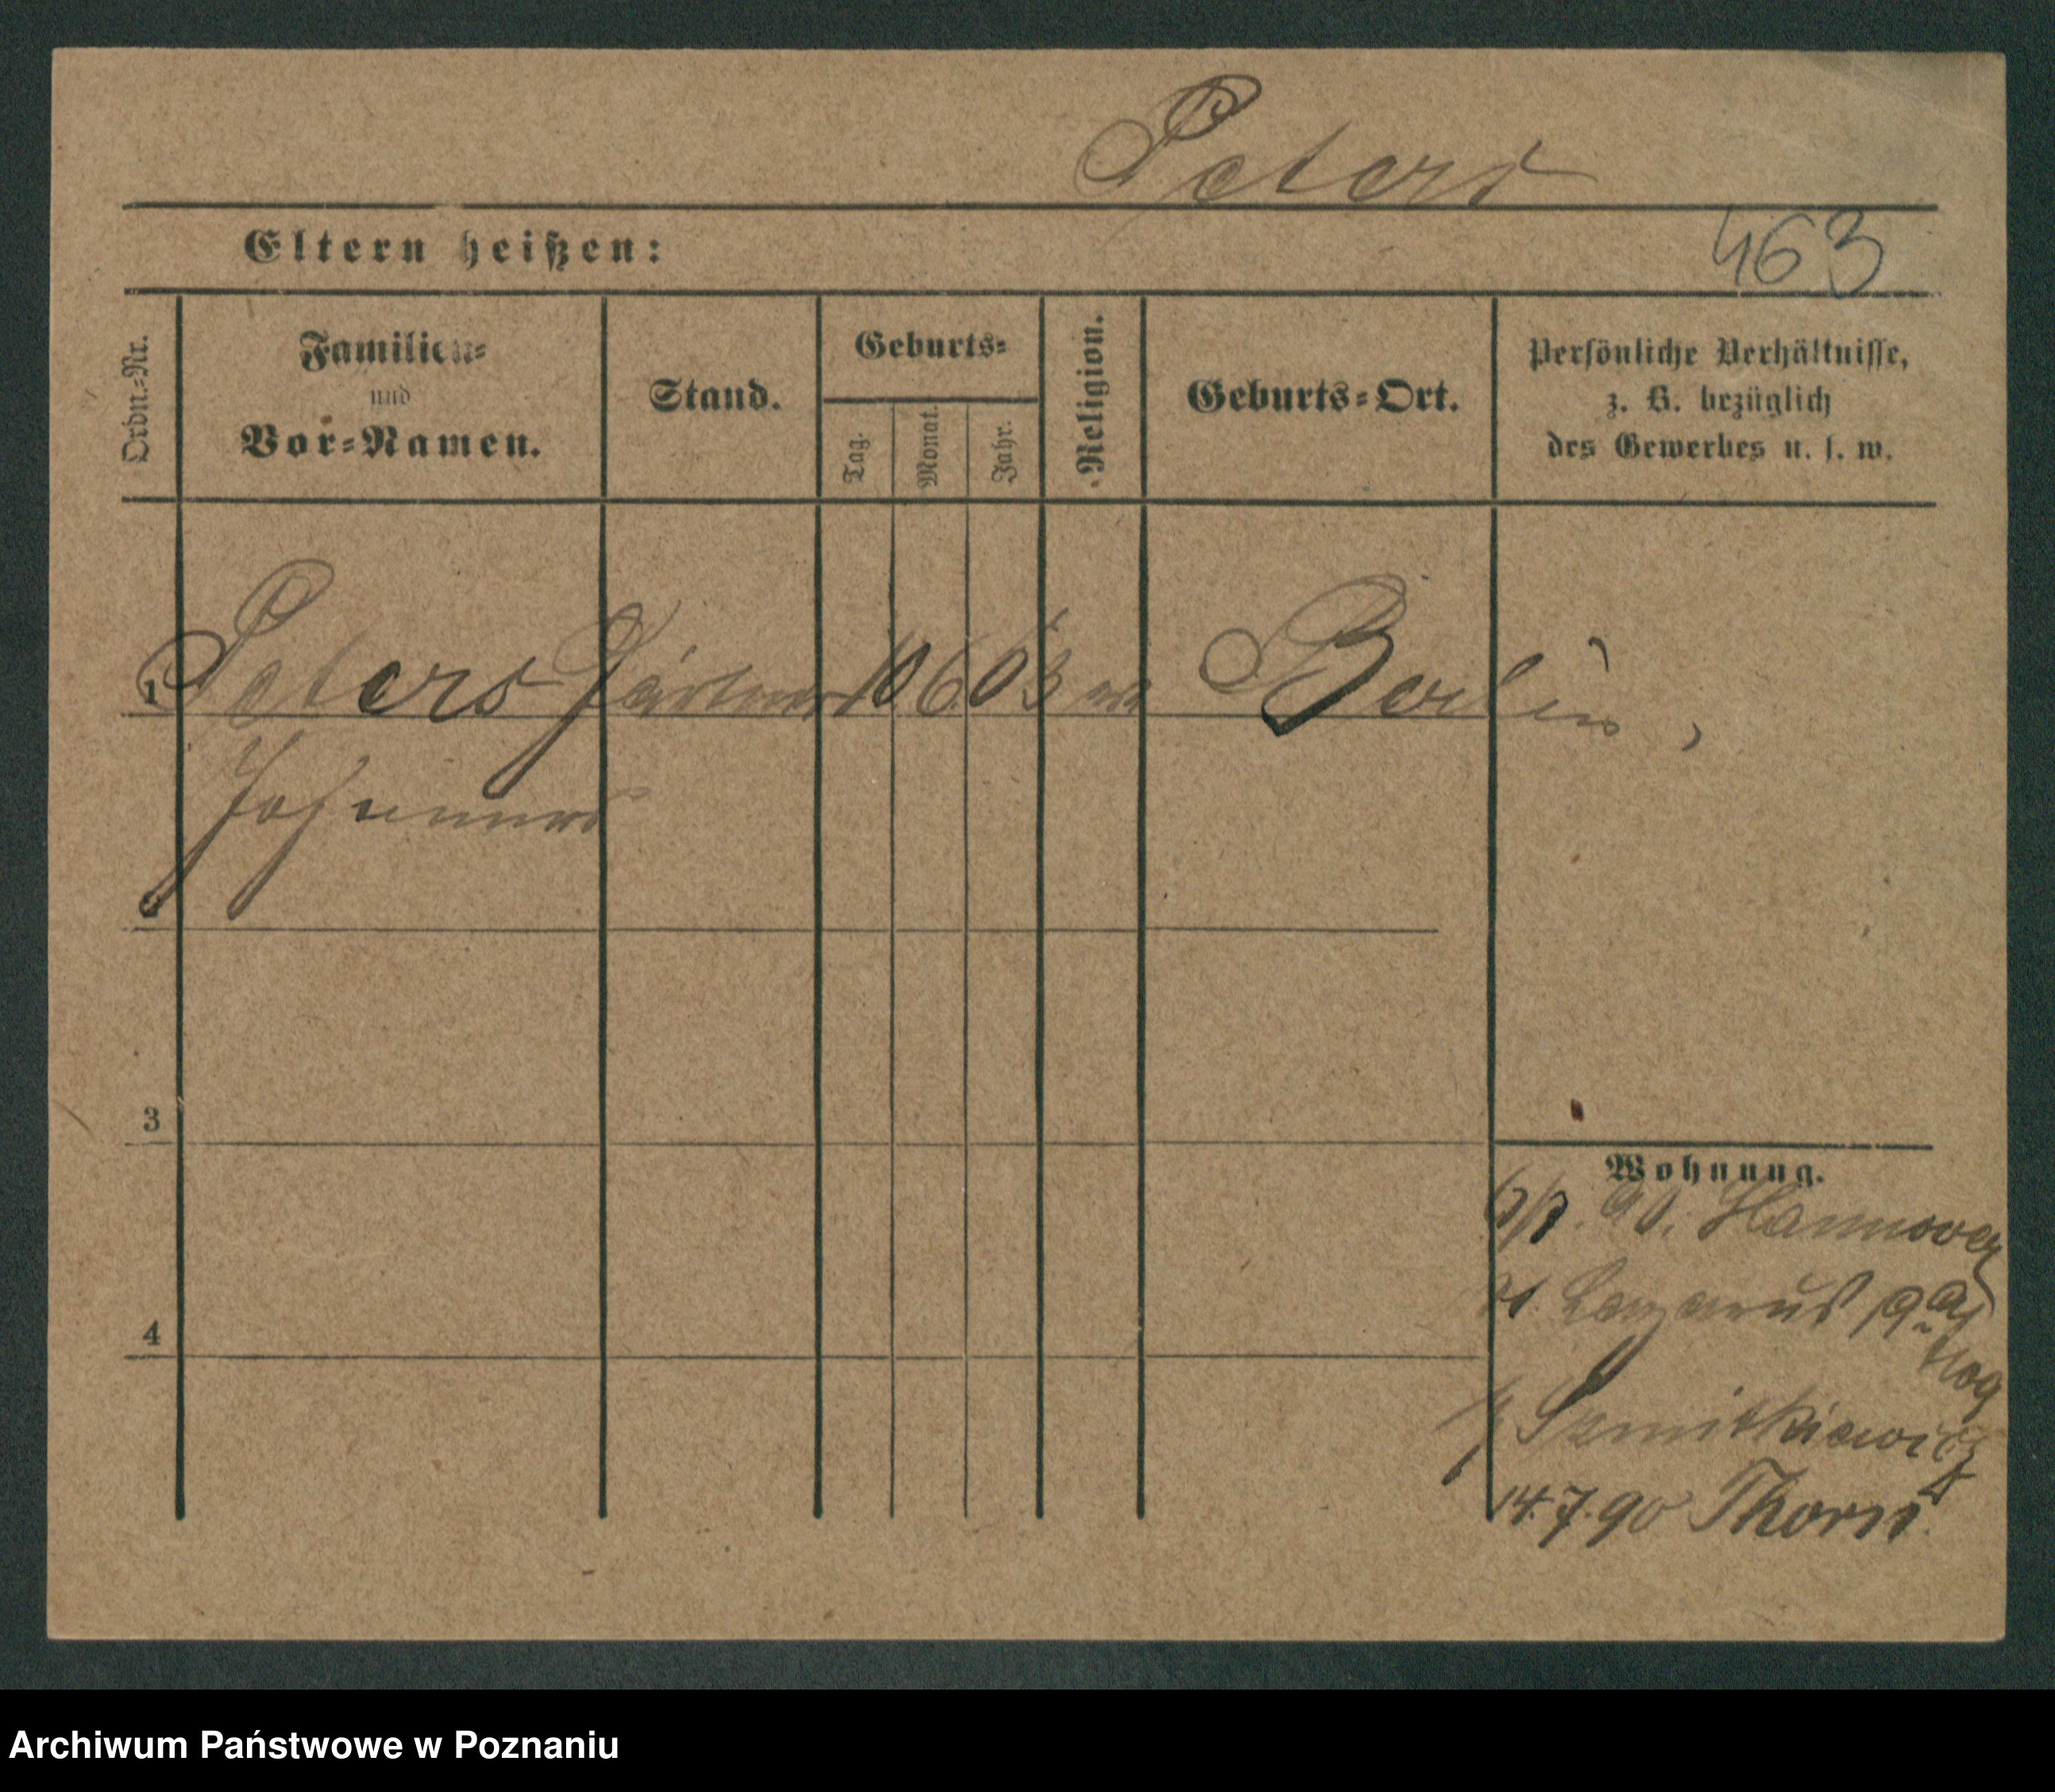 Peters
Eltern heißen:
463
Ordn.-Nr.
Familien-
und
Vor-Namen.
Stand.
Geburts-
Tag.
Monat.
Jahr.
Religion.
Geburts-Ort.
Persönliche Verhältnisse,
z. B. bezüglich
des Gewerbes u. s. w.
1 Peters Gärtner 10 6 63 Berlin,
Johannes
3
Wohnung.
90. Hannover
Lazarus 19a
4
Szmitkiewicz
14.7.90 Thorn.
Archiwum Państwowe w Poznaniu